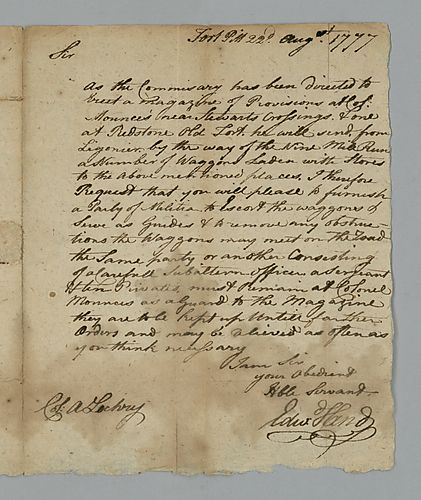 Fort Pitt 22d. Augst. 1777
Sir
As the Commissary has been directed to
Erect a magazine of Provisions at Col.
Mounces near Stewarts Crossings, & one
at Redstone Old Fort, he will send, from
Ligonier by the way of the Nine Mile Run
a Number of Waggons Laden with Stores
to the above mentioned places, I therefore
Request that you will please to furnish
a Party of Militia to Escort the waggons &
Serve as Guides & to remove any Obstruc-
tions the Waggons may meet on the Road
the Same party or another Consisting
of a Carefull Subaltern officer a Serjeant
& ten Privates, must Remain at Colonel
Mounces as a Guard to the Magazine
they are to be kept up Untill farther
Orders and may be relieved as often as
you think necessary
I am Sir
your Obedient
Hble Servant
Edwd. Hand
Col: A Lochry